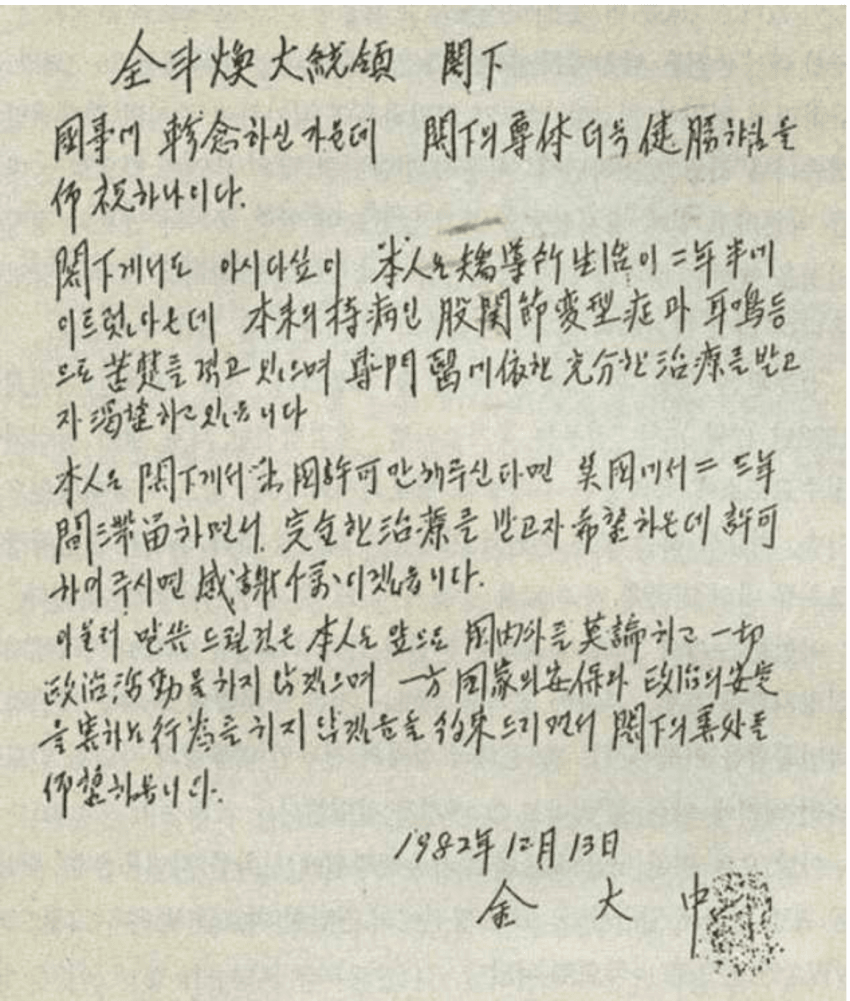 全斗煥大統領 閣下
國事에 軫念하신가운데 閣下의尊体더욱健勝하심을
仰祝하나이다.
閣下게서도 아시다싶이 本人은矯導所生活이二年半에
이르렀아온데 本来의持病인 股関節変型症과耳鳴等
으로 苦楚를 격고 있으며 専門醫에依한 充分한治療를받고
자渴望하고있읍니다
本人은 閣下게서 出國許可만해주신다면 美國에서 二 三年
間滞留하면서 完全한治療를 받고자希望하온데 許可
하여주시면 感謝千萬이겠읍니다.
아울러 말씀 드릴것은 本人은앞으로 国内外를莫論하고 一切
政治活動을하지 않겠으며 一方 国家의安保와 政治의安定
을害하는行為를하지 않겠음을 約束드리면서 閣下의善処를
仰望하옵니다.
1982年12月13日
金大中